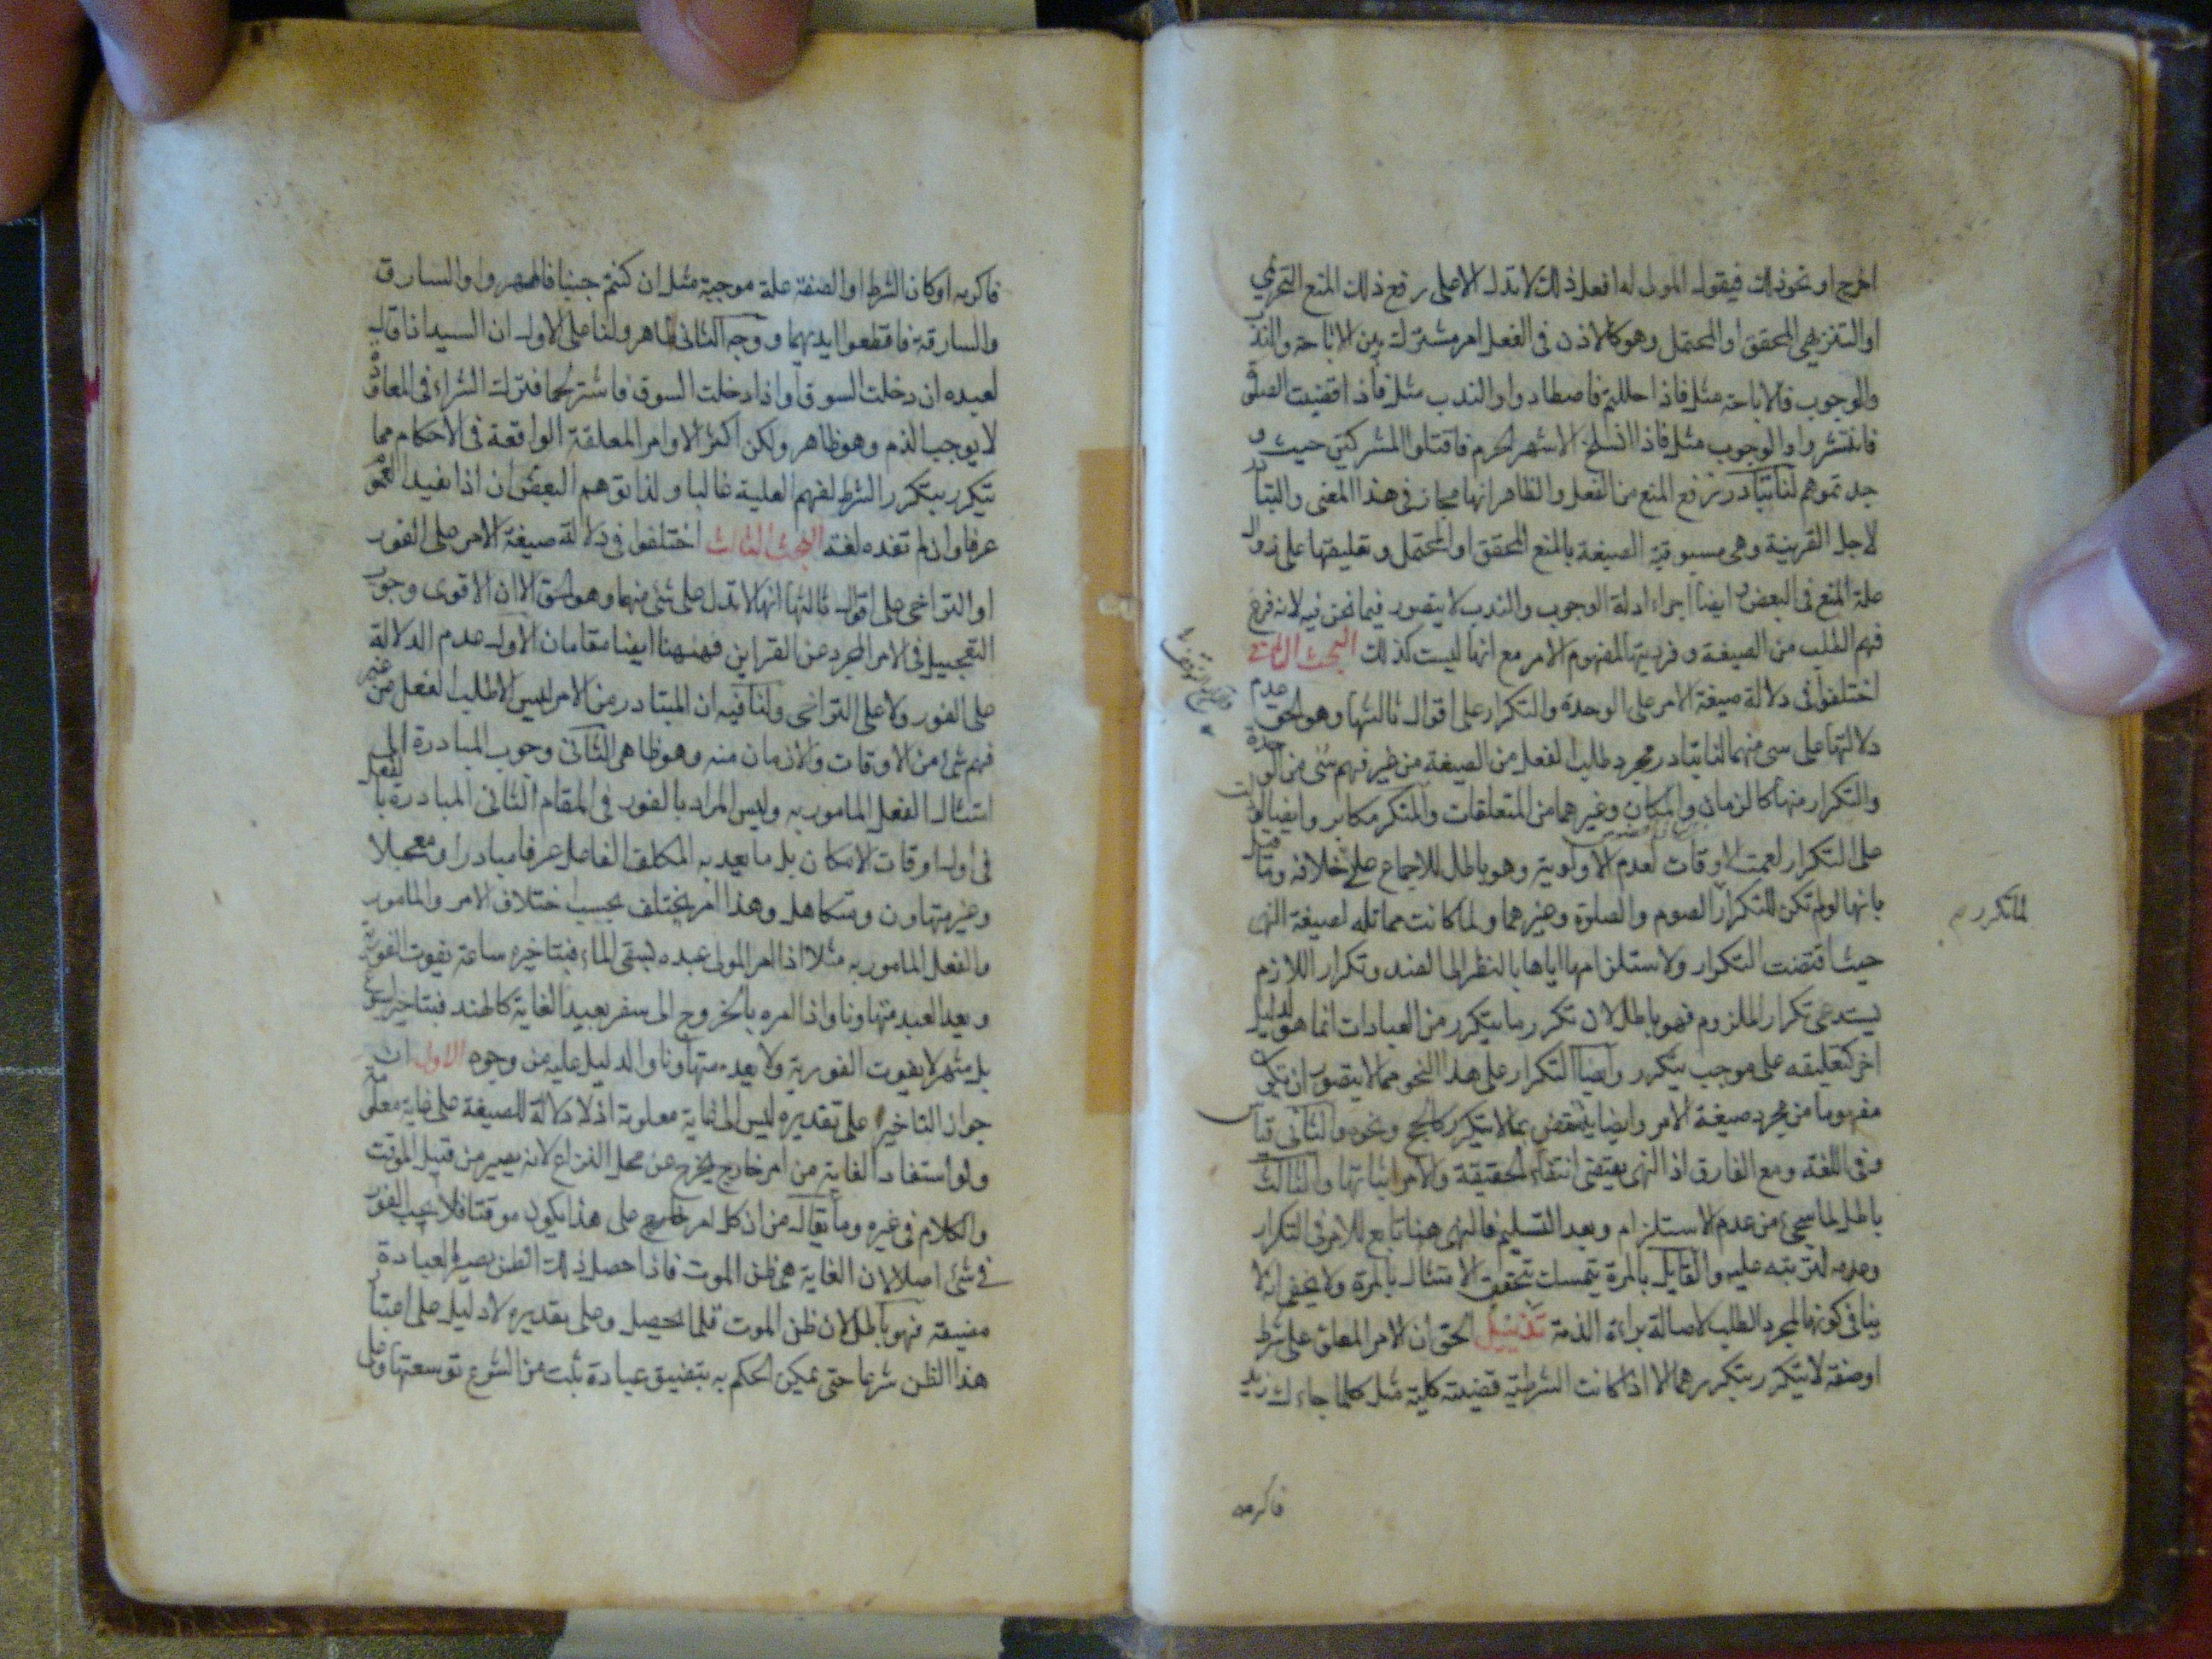 اخرج او نحو ذلك فيقول المولى له افعل ذلك لا تدل الا على رفع ذلك المنع التحريمي
او التنزيهي المحقق او المحتمل وهو كالاذن في الفعل امر مشترك بين الاباحة والندب
والوجوب فالاباحة مثل فاذا حللتم فاصطادوا والندب مثل فاذا قضيت الصلوة
فانتشروا والوجوب مثل فاذا انسلخ الاشهر الحرم فاقتلوا المشركين حيث و
جدتموهم لنا تبادر رفع المنع من الفعل والظاهر انها مجاز في هذا المعنى والتبادر
لاجل القرينة وهي مسبوقية الصيغة بالمنع المحقق او المحتمل وتعليقها على زوال
علة المنع في البعض وايضا اجراء ادلة الوجوب والندب لا يتصور فيما نحن فيه لانه فرع
فهم الطلب من الصيغة وفرديتها لمفهوم الامر مع انها ليست كذلك البحث الثاني
اختلفوا في دلالة صيغة الامر على الوحدة والتكرار على اقوال ثالثها وهو الحق عدم
دلالتها على شئ منهما لنا تبادر مجرد طلب الفعل من الصيغة من غير فهم شئ من الوحدة
والتكرار منها كالزمان والمكان وغيرهما من المتعلقات والمنكر مكابر وايضا لو دلت
على التكرار لعمت الاوقات لعدم الاولوية وهو باطل للاجماع على خلافه وما قيل
بانها لو لم تكن للتكرار الصوم والصلوة وغيرهما ولما كانت مماثله لصيغة النهى
لما تكرر م
حيث اقتضت التكرار ولاستلزامها اياها بالنظر الى الضد وتكرار اللازم
يستدعى تكرار الملزوم فهو باطل لان تكرر ما يتكرر من العبادات انما هو لدليل
اخر كتعليقه على موجب يتكرر وايضا التكرار على هذا النحو مما لا يتصور ان تكون
مفهوما من مجرد صيغة الامر وايضا ينتقض بما لا يتكرر كالحج ونحوه والثاني قياس
وفي اللغة ومع الفارق اذ النهى يقتضى انتفاء الحقيقة والامر اثباتها والثالث
باطل لما سيجئ من عدم الاستلزام وبعد التسليم فالنهى هنا تابع للامر في التكرار
وعدمه لترتبه عليه والقايل بالمرة يتمسك بتحقق الامتثال بالمرة ولا يخفى انه لا
ينافى كونها لمجرد الطلب لاصالة براءة الذمة تذييل الحق ان الامر المعلق على شرط
او صفة لا يتكرر بتكررهما الا اذا كانت الشرطية قضية كلية مثل كلما جاءك زيد
فاكرمه
فاكرمه او كان الشرط او الصفة علة موجبة مثل ان كنتم جنبا فاطهروا والسارق
والسارقة فاقطعوا ايديهما ووجه الثانى ظاهر ولنا على الاول ان السيد اذا قال
لعبده ان دخلت السوق او اذا دخلت السوق فاشتر لحما فترك الشراء في المعاودة
لا يوجب الذم وهو ظاهر ولكن اكثر الاوامر المعلقة الواقعة في الاحكام مما
يتكرر بتكرر الشرط لفهم العلية غالبا ولذا توهم البعض ان اذا تفيد العموم
عرفا وان لم تفده لغة البحث الثالث اختلفوا في دلالة صيغة الامر على الفور
او التراخى على اقوال ثالثها انها لا تدل على شئ منهما وهو الحق الا ان الاقوى وجوب
التعجيل في الامر المجرد عن القراين فههنا ايضا مقامان الاول عدم الدلالة
على الفور ولا على التراخى ولنا فيه ان المتبادر من الامر ليس الا طلب الفعل من غير
فهم شئ من الاوقات والازمان منه وهو ظاهر الثانى وجوب المبادرة الى
امتثال الفعل المامور به وليس المراد بالفور في المقام الثانى المبادرة بالفعل
في اول اوقات الامكان بل ما يعد به المكلف الفاعل عرفا مبادرا ومعجلا
وغير متهاون ومتكاهل وهذا امر يختلف بحسب اختلاف الامر والمامور
والفعل المامور به مثلا اذا امر المولى عبده بسقى الماء فبتاخيره ساعة يفوت الفورية
ويعد العبد متهاونا واذا امره بالخروج الى سفر بعيد الغاية كالهند فبتاخير اسبوع
بل شهر لا يفوت الفورية ولا يعد متهاونا والدليل عليه من وجوه الاول ان
جواز التاخير على تقديره ليس الى غاية معلومة اذ لا دلالة للصيغة على غاية معلومة
ولو استفاد الغاية من امر خارج يخرج عن محل النزاع لانه يصير من قبيل الموقت
والكلام في غيره وما يقال من ان كل امر خارج على هذا يكون موقتا فلا يجب الفور
في شئ اصلا لان الغاية هى ظن الموت فاذا حصل ذلك الظن يصير العبادة
مضيقة فهو باطل لان ظن الموت قلما يحصل وعلى تقديره لا دليل على اعتبار
هذا الظن شرعا حتى يمكن الحكم به بتضييق عبادة ثبت من الشرع توسعتها وعلى